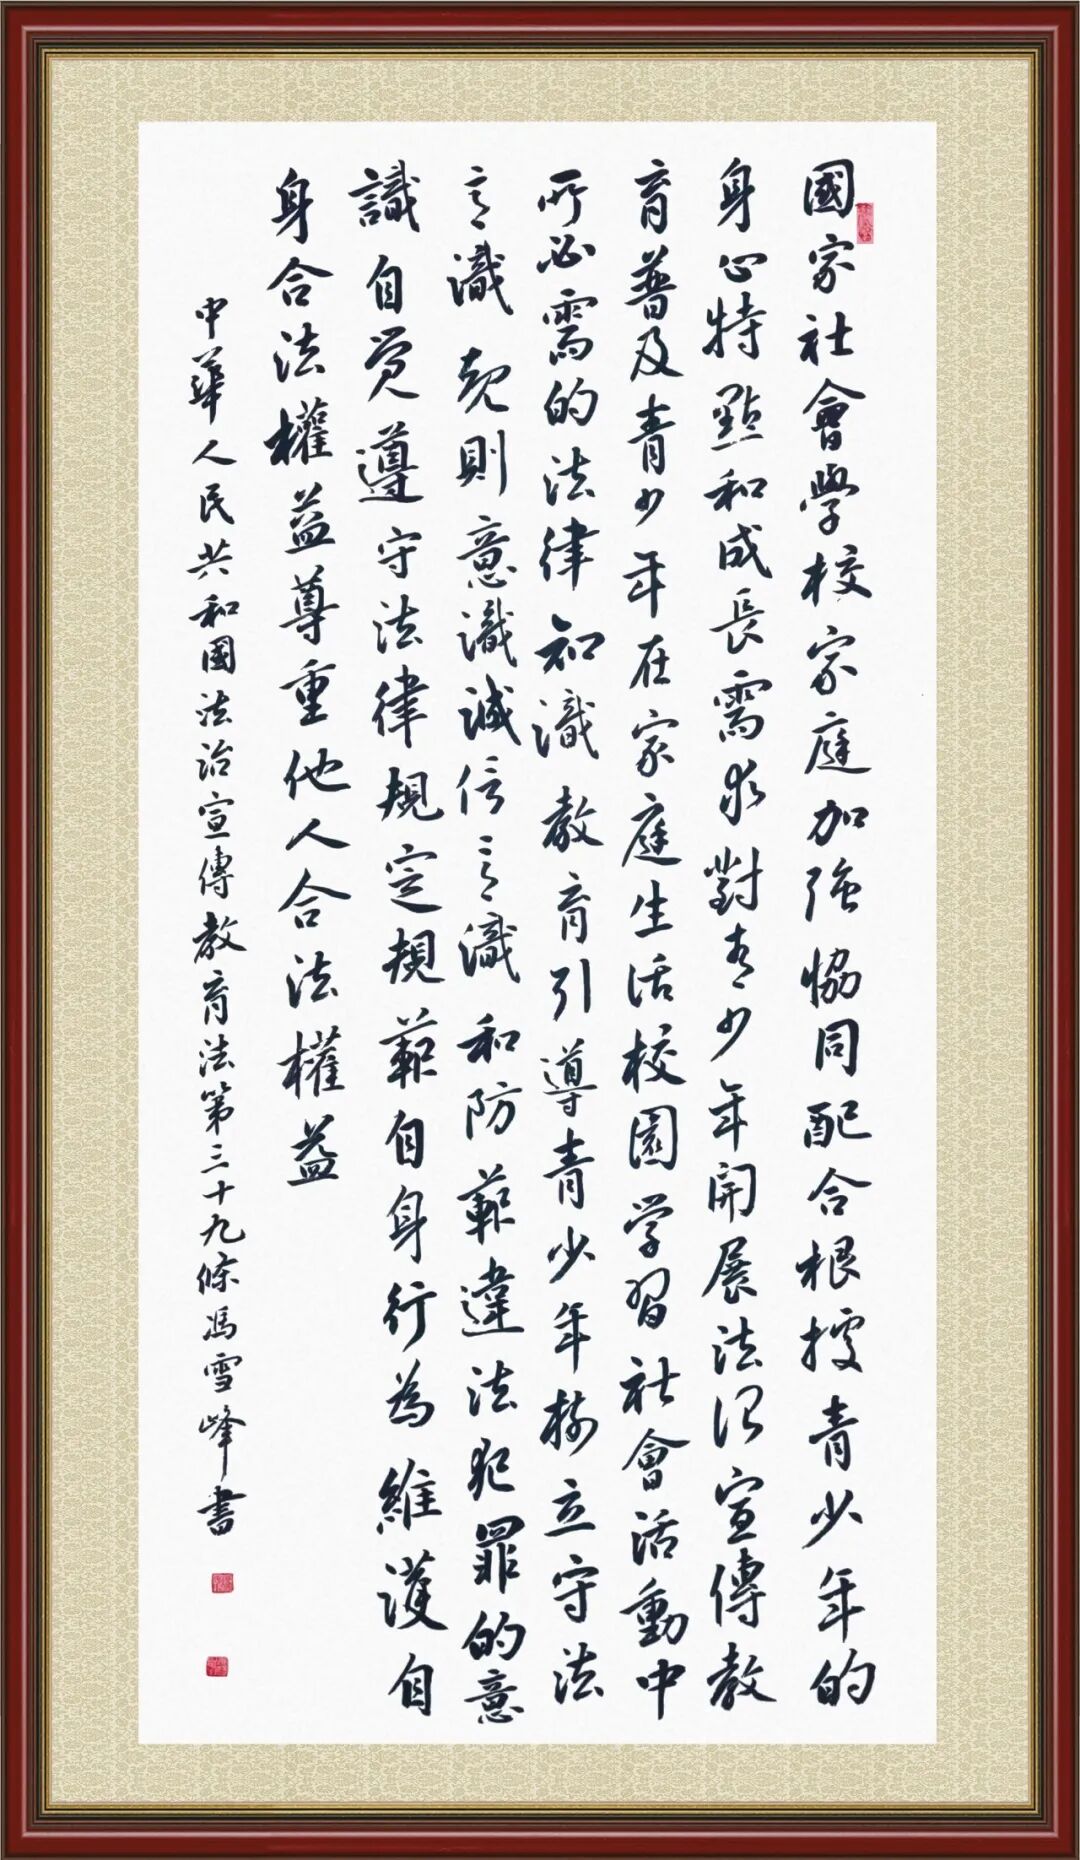 國家社會學校家庭加強協同配合根據青少年的
身心特點和成長需求對青少年開展法治宣傳教
育普及青少年在家庭生活校園学習社會活動中
所必需的法律知識教育引導青少年樹立守法
意識規則意識誠信意識和防範違法犯罪的意
識自覚遵守法律規定規範自身行为維護自
身合法權益尊重他人合法權益
中華人民共和國法治宣傳教育法第三十九條馮雪峰書